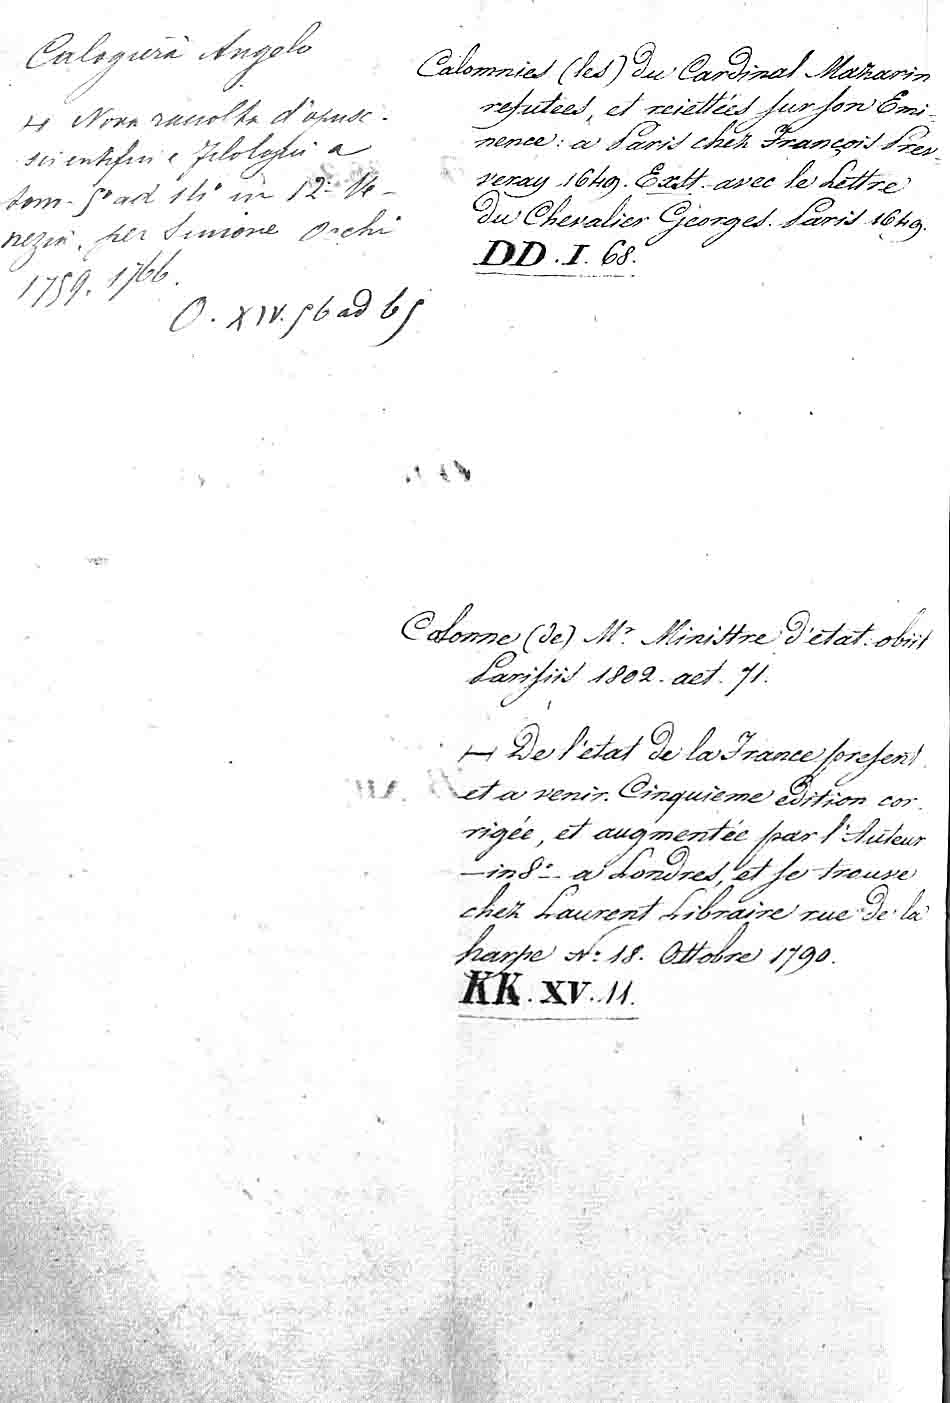 Calogierà Angelo
⊢⊣ Nova raccolta d'opusc.
scientifici e filologici a
tom. 5° ad 14° in 12.° Ve-
nezia. per Simone Occhi
1759. 1766.
O. XIV. 56 ad 65
Calomnies (les) du Cardinal Mazarin
refutées, et reiettées sur son Emi-
nence: a Paris chez François Preu-
veray 1649. Extt. avec le Lettre
du Chevalier Georges. Paris 1649.
DD. I. 68.
Calonne (de) Mr. Ministre d'état. obiit
Parisiis 1802. aet. 71.
⊢⊣ De l'état de la France present
et a venir. Cinquieme edition cor-
rigée, et augmentée par l'Auteur
- in 8.° - a Londres, et se trouve
chez Laurent Libraire rue de la
harpe N.° 18. Ottobre 1790.
KK. XV. 11.